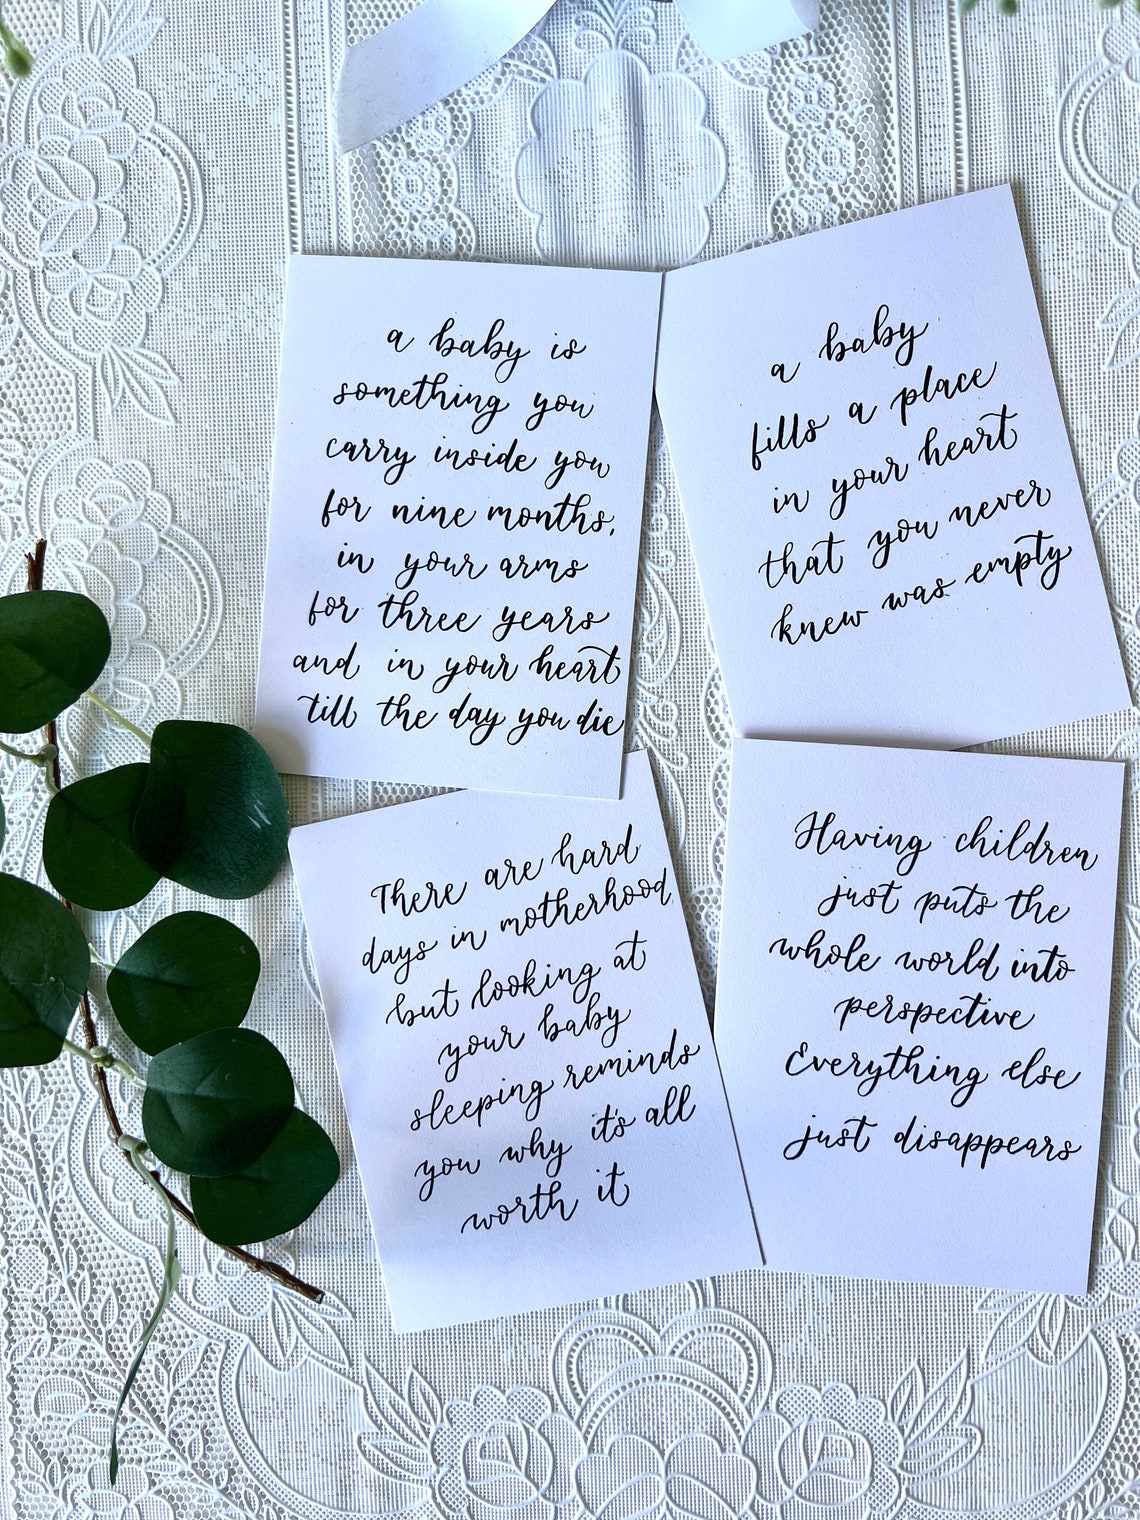 a baby is
something you
carry inside you
for nine months,
in your arms
for three years
and in your heart
till the day you die
a baby
fills a place
in your heart
that you never
knew was empty
There are hard
days in motherhood,
but looking at
your baby
sleeping reminds
you why it's all
worth it
Having children
just puts the
whole world into
perspective
Everything else
just disappears